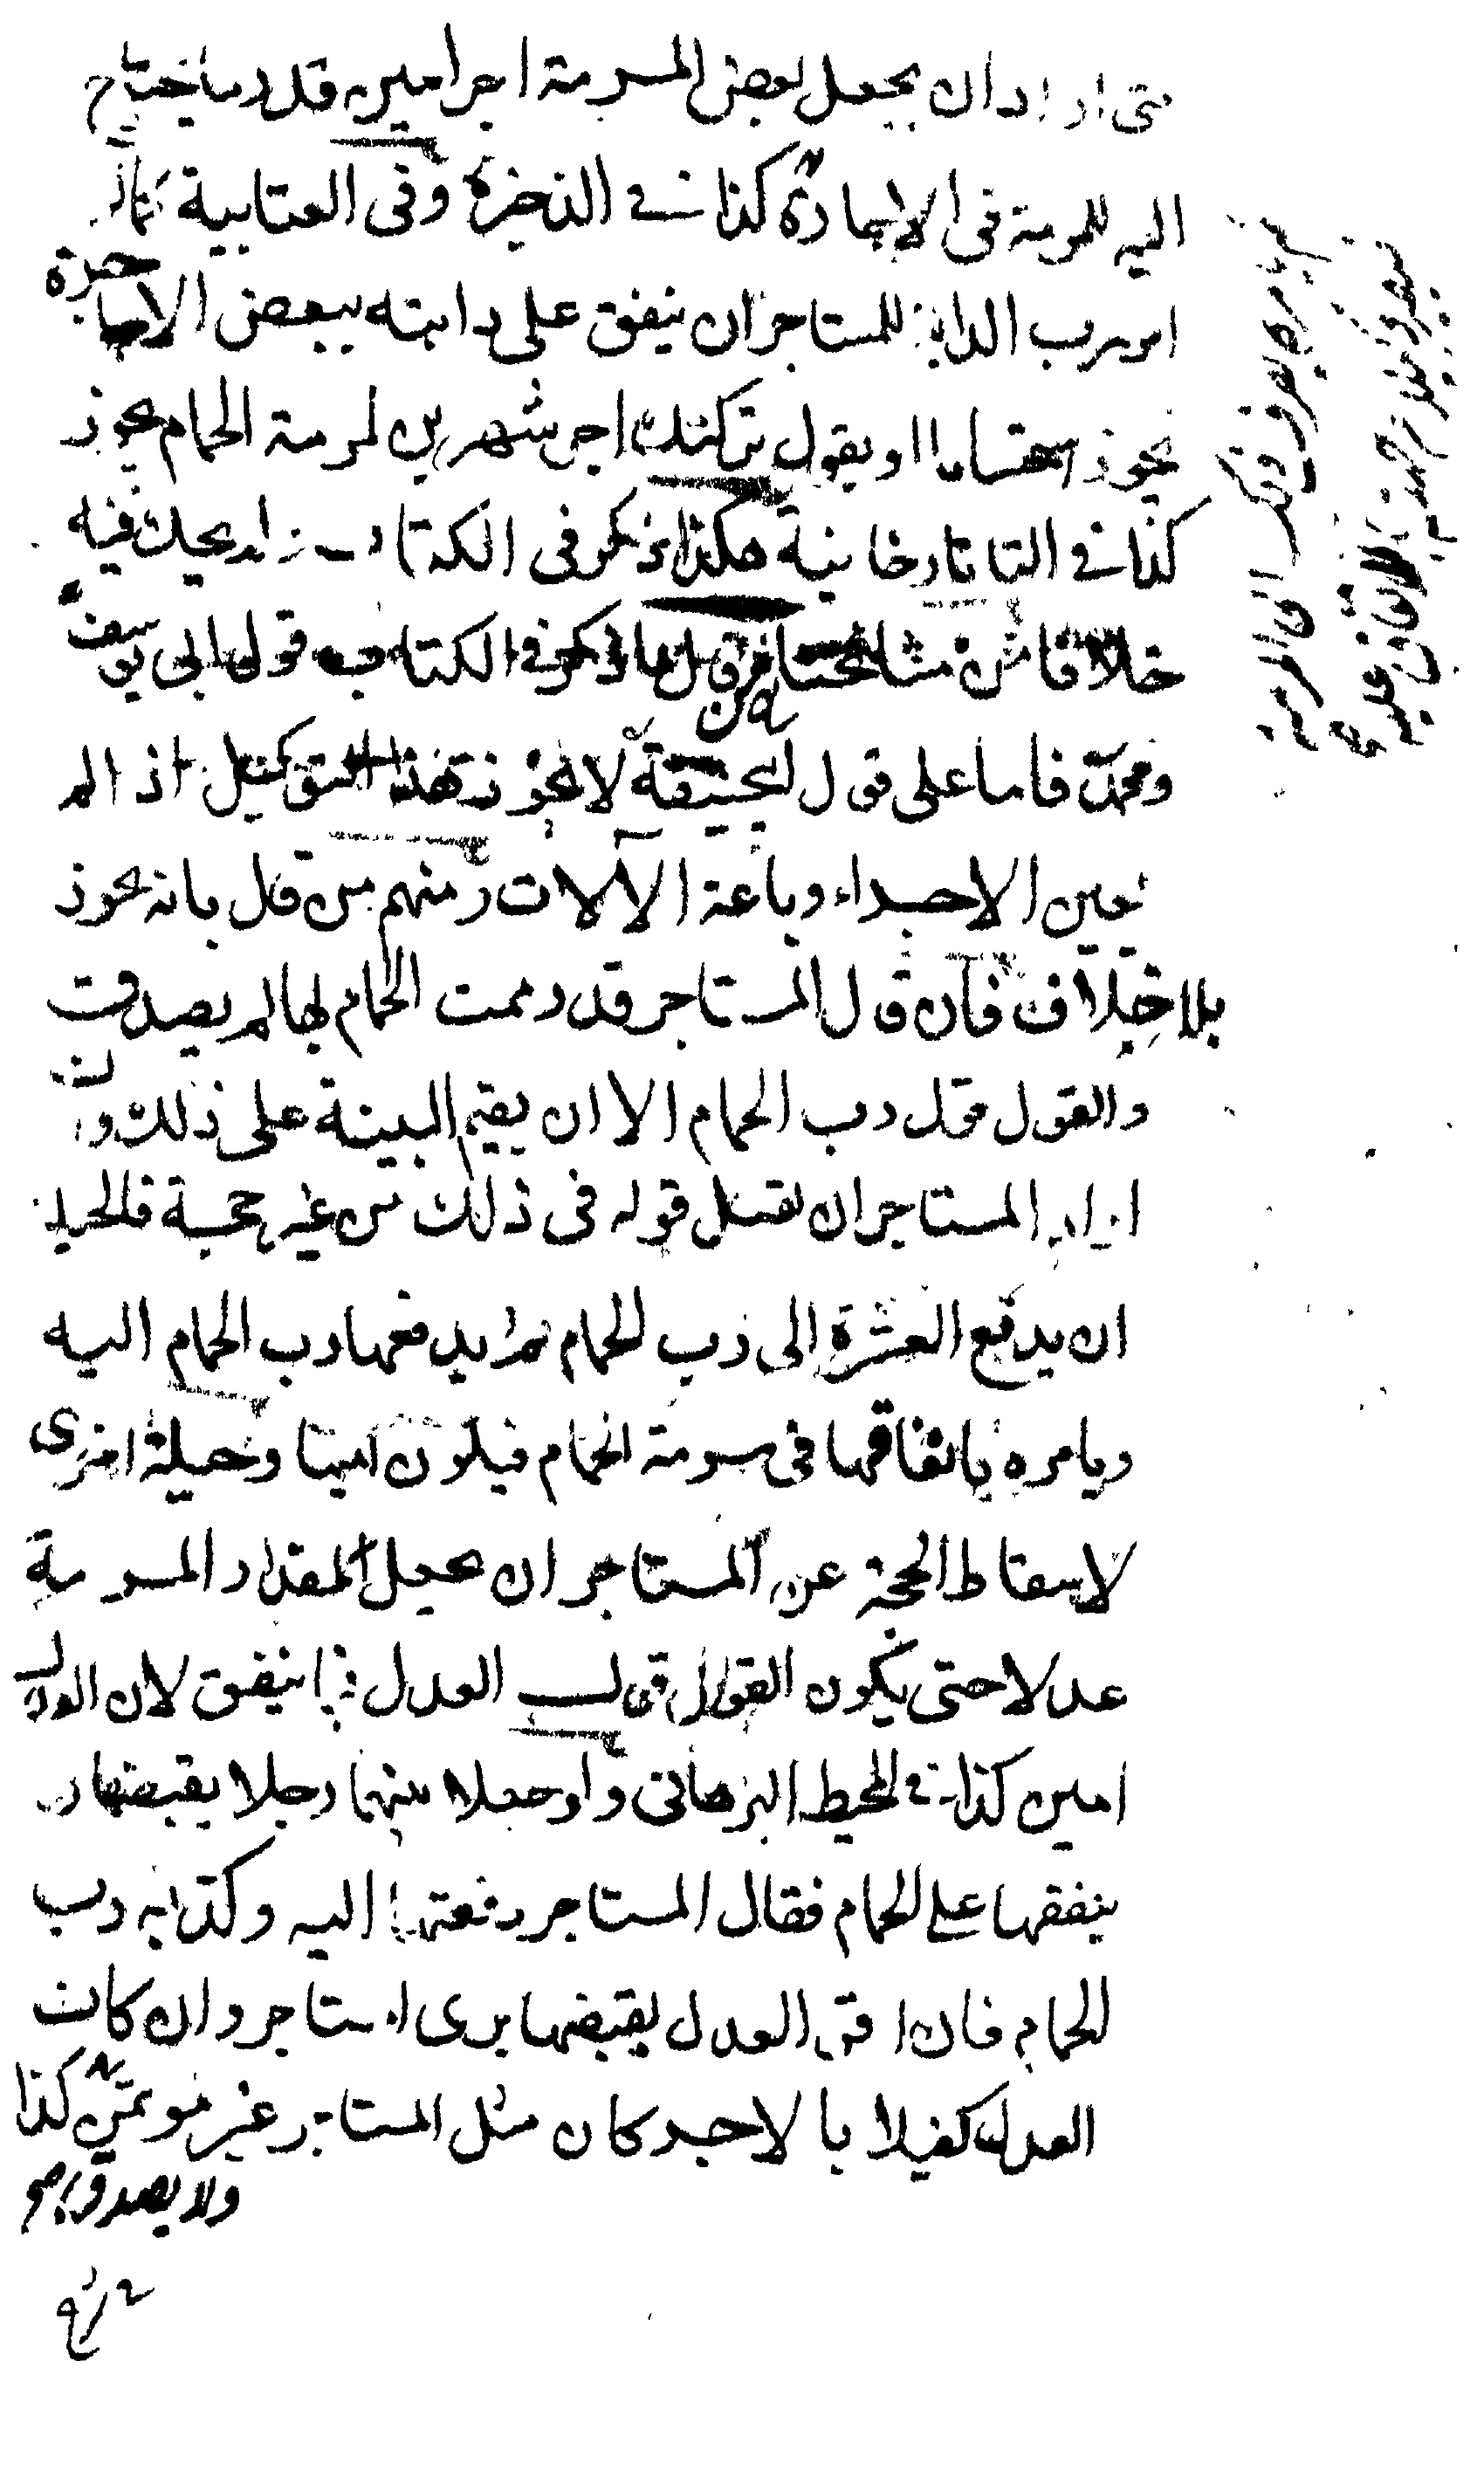 متى اراد ان يجعل بعض المرمة اجرا يبين قدر ما يحتاج
اليه للمرمة فى الاجارة كذا في الذخيرة وفى العتابية
امر رب الدابة للمستاجر ان ينفق على دابته ببعض الاجرة
يجوز استحسانا او يقول تركت اجر شهرين لمرمة الحمام يجوز
كذا في التاتارخانية هكذا ذكر فى الكتاب ولم يحك فيه
خلافا من مشائخنا من قال ما ذكر في الكتاب قول ابى يوسف
ومحمد فاما على قول ابيحنيفة لا يجوز هذا التوكيل اذا لم
يعين الاجراء وباعة الآلات ومنهم من قال بانه يجوز
بلا خلاف فان قال المستاجر قد رممت الحمام بها لم يصدق
والقول قول رب الحمام الا ان يقيم البينة على ذلك وان
اراد المستاجر ان يقبل قوله فى ذلك من غير حجة فالحيلة
ان يدفع العشرة الى رب الحمام ثم يدفعها رب الحمام اليه
ويامره بانفاقها فى مرمة الحمام فيكون امينا وحيلة اخرى
لاسقاط الحجة عن المستاجر ان يجعل المقدار المرمة
عدلا حتى يكون القول قول العدل فيما ينفق لان العدل
امين كذا في المحيط البرهانى ولو جعلا بينهما رجلا يقبضها و
ينفقها على الحمام فقال المستاجر دفعتها اليه وكذبه رب
الحمام فان اقر العدل بقبضها برى المستاجر وان كان
العدل كفيلا بالاجر كان مثل المستاجر غير مؤتمن كذا
ولا يصدق